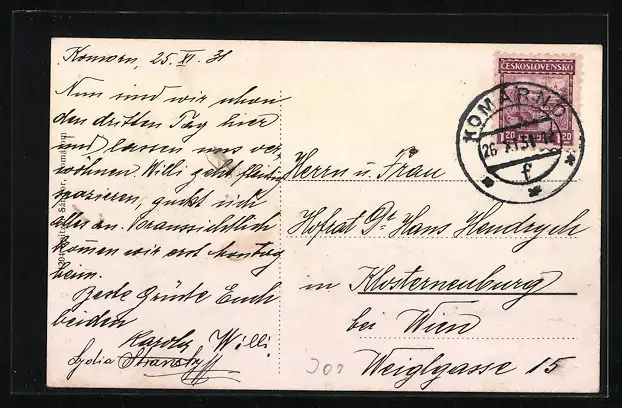 Komorn, 25. XI. 31
Nun sind wir schon
den dritten Tag hier
und lassen uns ver-
wöhnen. Willi geht fleißig
spazieren, guckt sich
alles an. Voraussichtlich
kommen wir erst Montag
heim.
Beste Grüße Euch
beiden
Karoly Willi
Lydia
ČESKOSLOVENSKO
20 20
KOMÁRNO
26. XI. 31
f
Herrn u. Frau
Hofrat Dr. Hans Hendrych
in Klosterneuburg
bei Wien
Weiglgasse 15